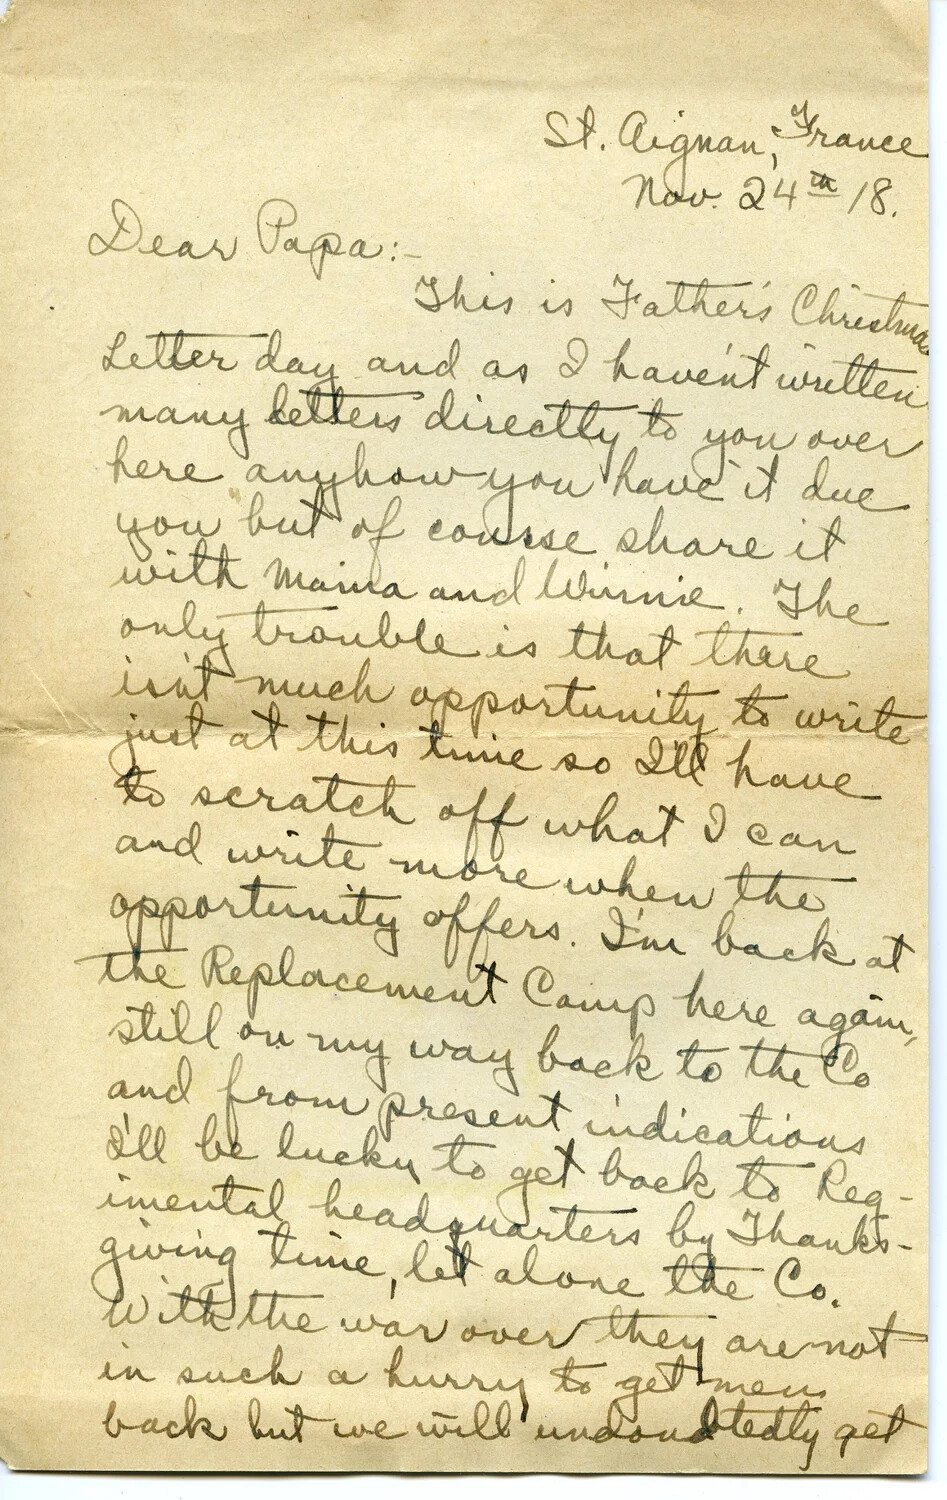 St. Aignan, France
Nov. 24th 18.
Dear Papa:-
This is Father's Christmas
Letter day and as I haven't written
many letters directly to you over
here anyhow you have it due
you but of course share it
with Mama and Winnie. The
only trouble is that there
isn't much opportunity to write
just at this time so I'll have
to scratch off what I can
and write more when the
opportunity offers. I'm back at
the Replacement Camp here again,
still on my way back to the Co
and from present indications
I'll be lucky to get back to Reg-
imental headquarters by Thanks-
giving time, let alone the Co.
With the war over they are not
in such a hurry to get men
back but we will undoubtedly get